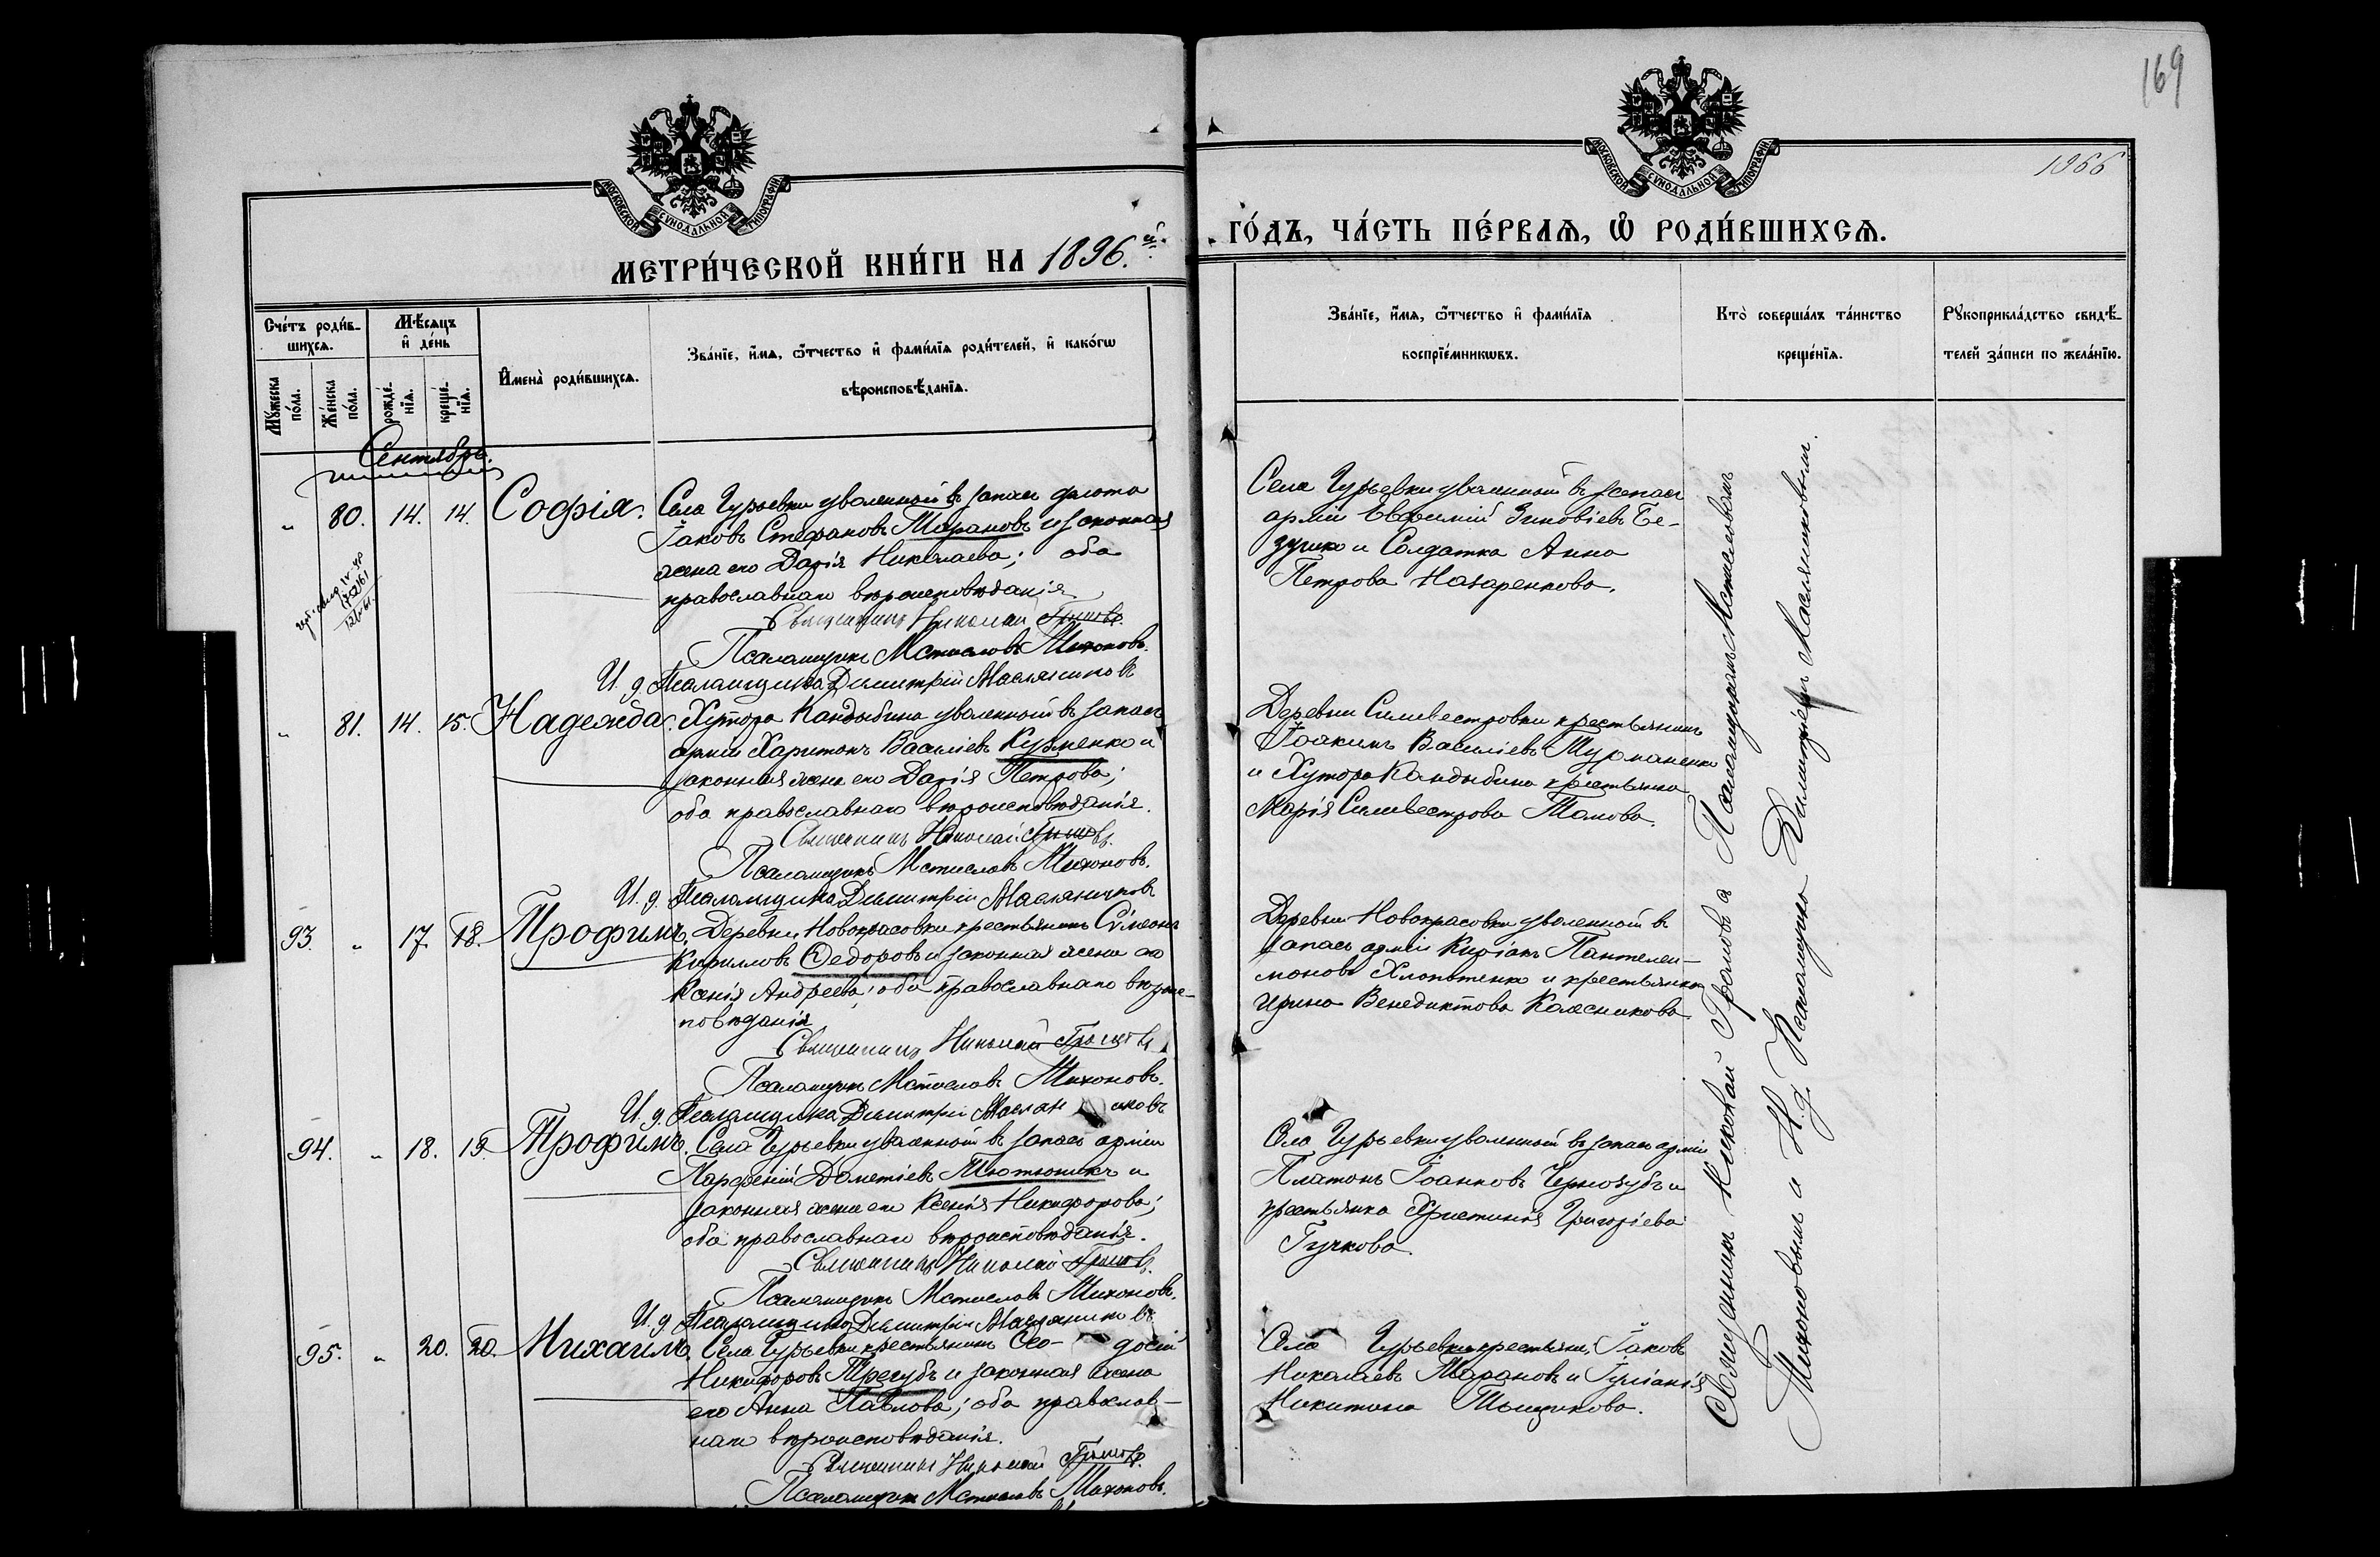 169
1966
МОСКОВСКОЙ СѴНОДАЛЬНОЙ ТИПОГРАФІИ
МОСКОВСКОЙ СѴНОДАЛЬНОЙ ТИПОГРАФІИ
МЕТРИ́ЧЕСКОЙ КНИ́ГИ НА 1896.й
ГО́ДЪ, ЧА́СТЬ ПЕ́РВАѦ, Ѡ҆ РОДИ́ВШИХСѦ.
Сче́тъ роди́в-
шихсѧ.
Мѣ́сѧцъ
и҆ де́нь
Мꙋ́жеска
по́ла.
Же́нска
по́ла.
рожде́-
нїѧ.
креще́-
нїѧ.
И҆мена̀ роди́вшихсѧ.
Зва́нїе, и҆́мѧ, ѻ҆́тчество и҆ фами́лїѧ роди́телей, и҆ како́гѡ
вѣроисповѣ́данїѧ.
Зва́нїе, и҆́мѧ, ѻ҆́тчество и҆ фами́лїѧ
воспрїе́мникѡвъ.
Кто̀ соверша́лъ та́инство
креще́нїѧ.
Рꙋкоприкла́дство свидѣ́-
телей за́писи по жела́нїю.
Сентябрь.
„ 80. 14. 14. Софія.
Села Гурьевки уволенный въ запасъ флота
Іаковъ Стефановъ Марановъ и законная
жена его Дарія Николаева; оба
православнаго вѣроисповѣданія
Священникъ Николай Громовъ.
Псаломщикъ Мстиславъ Тихоновъ.
И. д. Псаломщика Димитрій Масляниковъ
Села Гурьевки уволенный въ запасъ
арміи Евфимій Зиновіевъ Бе-
зушко и Солдатка Анна
Петрова Назаренкова.
„ 81. 14. 15. Надежда.
Хутора Кандыбина уволенный въ запасъ
арміи Харитонъ Василіевъ Курменко и
законная жена его Дарія Петрова;
оба православнаго вѣроисповѣданія.
Священникъ Николай Громовъ.
Псаломщикъ Мстиславъ Тихоновъ.
И. д. Псаломщика Димитрій Масляниковъ
Деревни Силивестровки крестьянинъ
Іоакимъ Василіевъ Мурманенко
и Хутора Кандыбина крестьянка
Марія Силивестрова Томова.
93. „ 17. 18. Трофимъ.
Деревни Новокрасовки крестьянинъ Сѵмеонъ
Кирилловъ Ѳедоровъ и законная жена его
Ксенія Андреева; оба православнаго вѣроис-
повѣданія
Священникъ Николай Громовъ
Псаломщикъ Мстиславъ Тихоновъ.
И. д. Псаломщика Димитрій Маслян иковъ
Деревни Новокрасовки уволенный въ
запасъ арміи Киріакъ Пантелеи-
моновъ Хлопотенко и крестьянка
Ирина Венедиктова Колесникова
94. „ 18. 19. Трофимъ.
Села Гурьевки уволенный въ запасъ арміи
Парфеній Дометіевъ Тютюникъ и
законная жена его Ксенія Никифорова;
оба православнаго вѣроисповѣданія.
Священникъ Николай Громовъ.
Псаломщикъ Мстиславъ Тихоновъ.
И. д. Псаломщика Димитрій Масляниковъ
Села Гурьевки уволенный въ запасъ арміи
Платонъ Іоанновъ Чернозубъ и
крестьянка Христинія Григоріева
Гучкова.
95. „ 20. 20. Михаилъ.
Села Гурьевки крестьянинъ Ѳео- досій
Никифоровъ Трегубъ и законная жена
его Анна Павлова; оба православ-
наго вѣроисповѣданія.
Священникъ Николай Громовъ.
Псаломщикъ Мстиславъ Тихоновъ.
Села Гурьевки крестьяне, Іаковъ
Николаевъ Марановъ и Іуліанія
Никитина Тыщикова.
Священникъ Николай Громовъ съ Псаломщикомъ Мстиславомъ
Тихоновымъ и И. д. Псаломщика Димитріемъ Масляниковымъ.